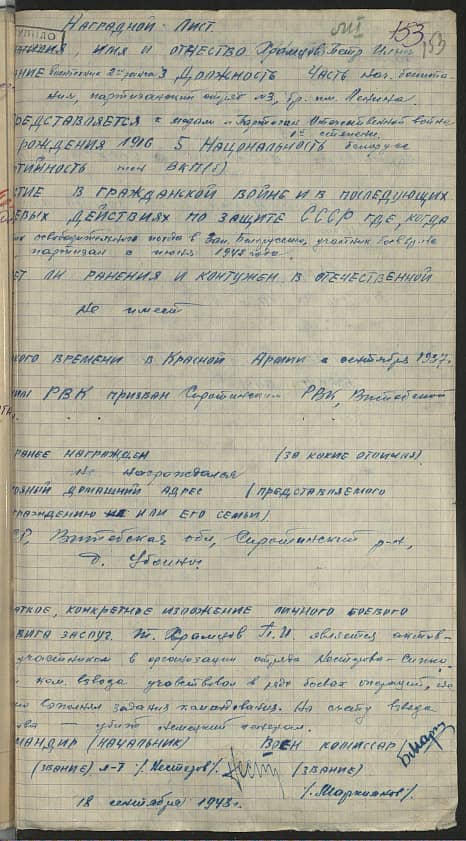 Наградной Лист.
153
153
имя и отчество Храмцов Петр
Должность Часть нач. боепита-
ния, партизанский отряд №3, бр. им. Ленина.
редставляется к медали "Партизан Отечественной войны
1й степени.
рождения 1916 5 Национальность белорус
тийность член ВКП(б)
стие в гражданской войне и в последующих
евых действиях по защите СССР где, когда
освободительного похода в Зап. Белоруссию, участник
партизан с июня 1942 года.
ет ли ранения и контужен в отечественной
Не имеет
кого времени в Красной Армии с сентября 1937г.
РВК призван Сиротинским РВК, Витебской
ранее награжден (за какие отличия)
Не награждался
оянный домашний адрес (представляемого
граждению или его семьи)
Р, Витебская обл, Сиротинский р-н,
д. Убоино.
аткое, конкретное изложение личного боевого
вига заслуг. т. Храмцов П. И. является актив-
участником в организации отряда
ком. взвода участвовал в ряде боевых операций,
выполнял задания командования. На счету взвода
убит немецкий генерал.
мандир (начальник) Воен комиссар
(звание) л-т /. Нестеров/. (звание)
/. Маркианов/.
18 сентября 1943г.